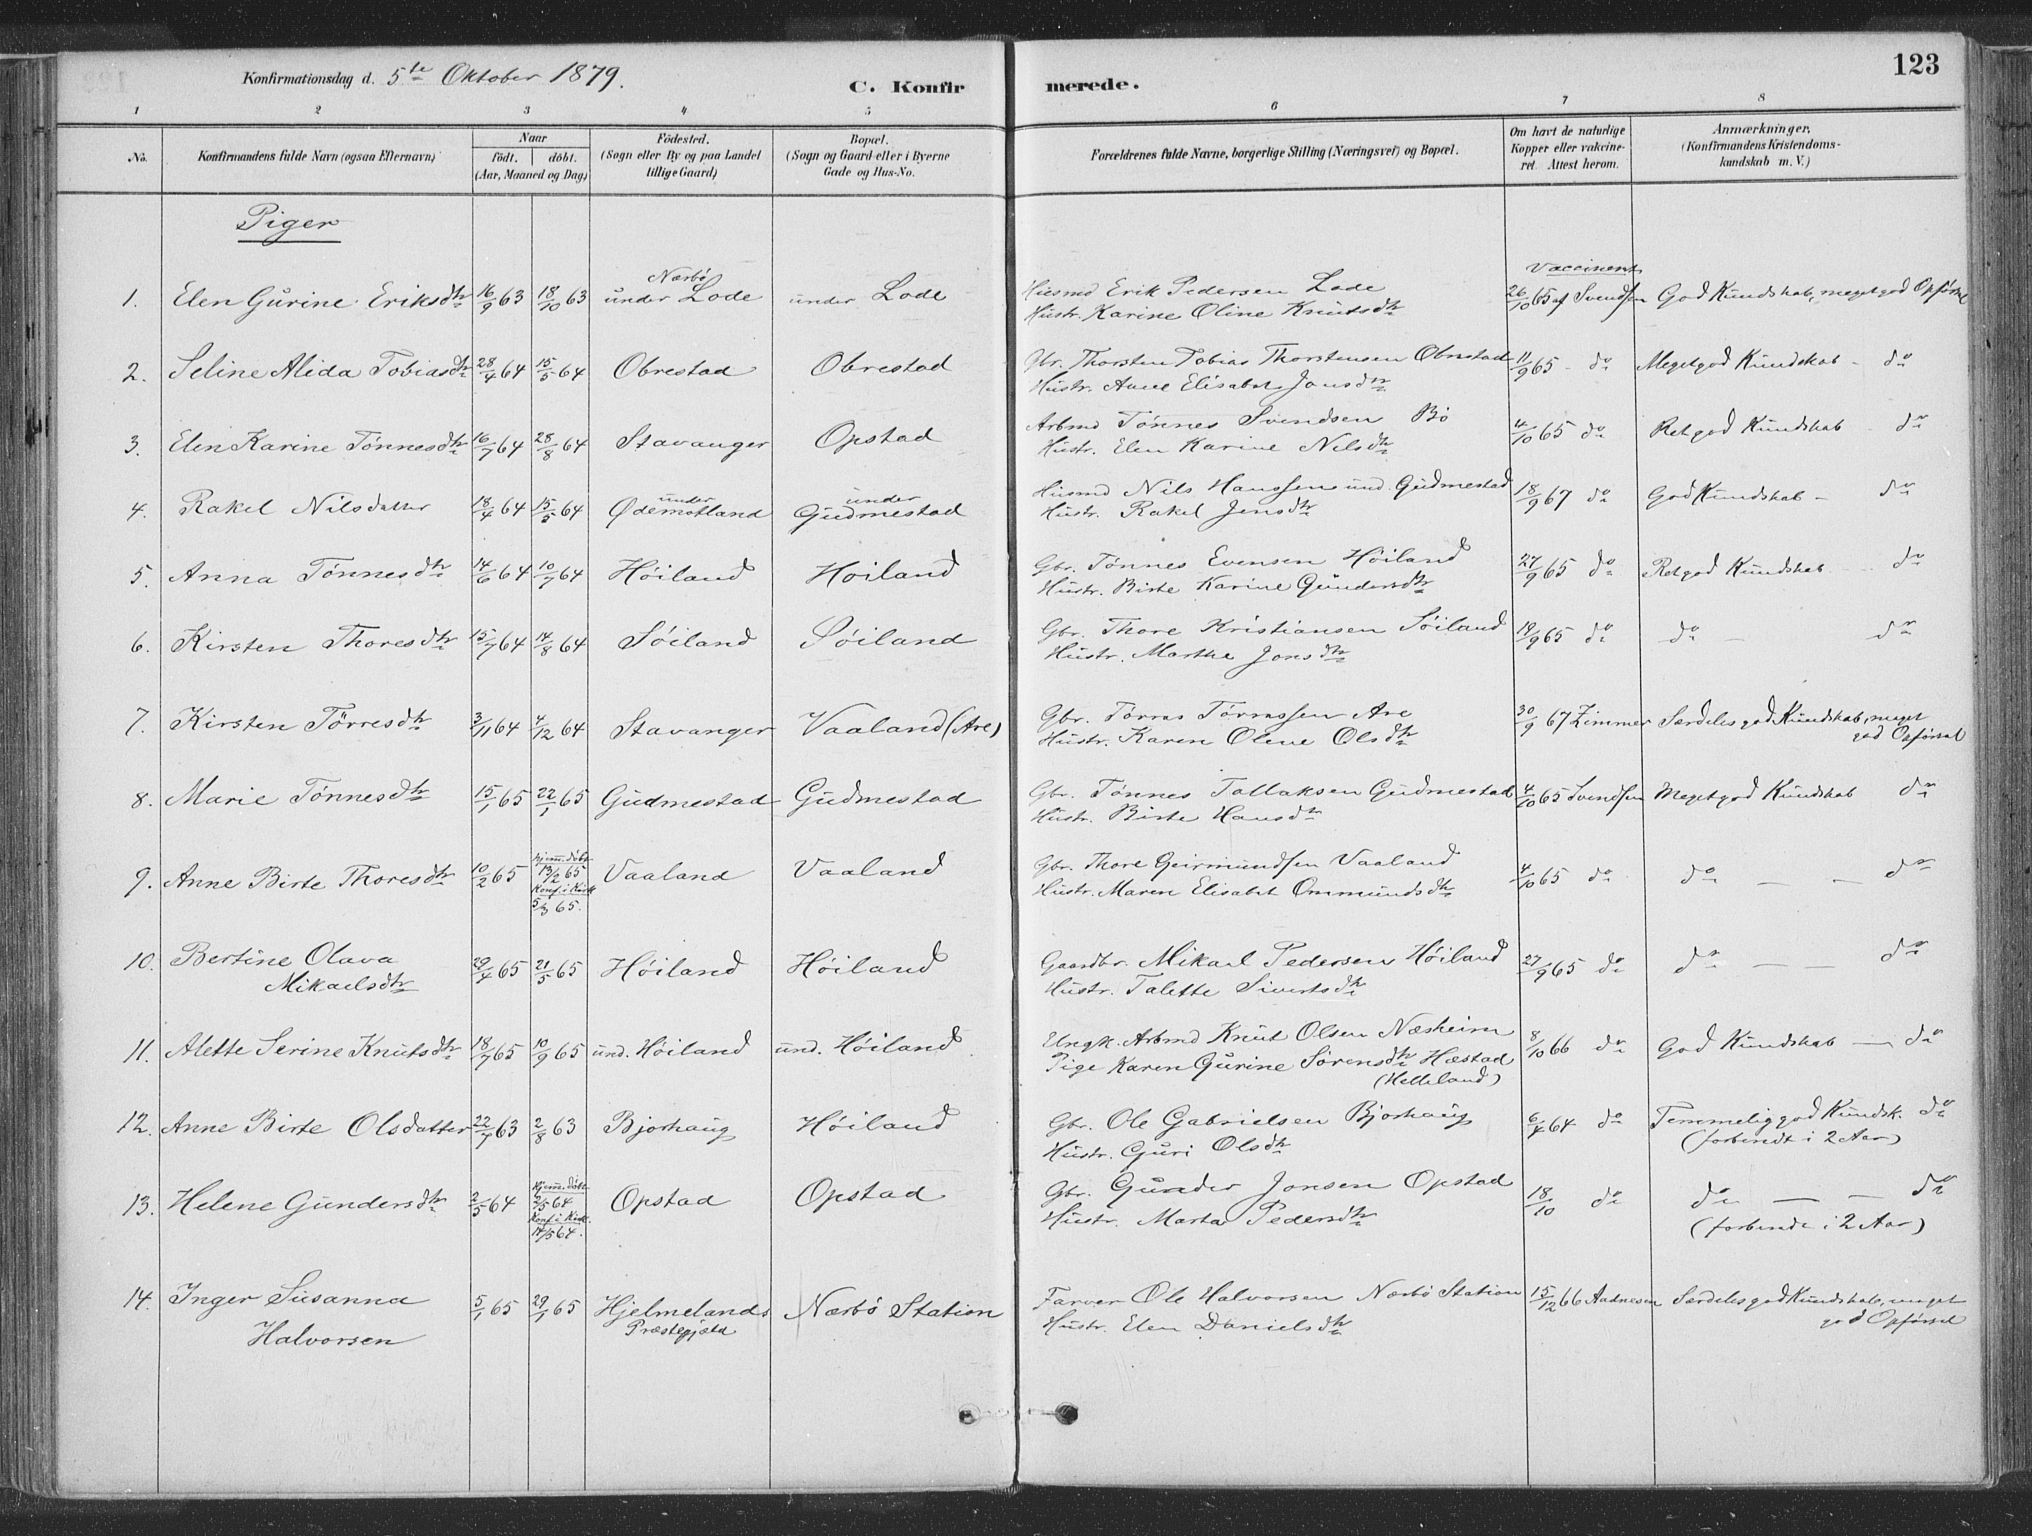 Konfirmationsdag d. 5te Oktober 1879.
C. Konfir merede. 123
1 2 3 4 5 6 7 8
No. Konfirmandens fulde Navn (ogsaa Efternavn) Naar födt. döbt. (Aar, Maaned og Dag) Födested. (Sogn eller By og paa Landet tillige Gaard) Bopæl. (Sogn og Gaard eller i Byerne Gade og Hus-No. Forældrenes fulde Navne, borgerlige Stilling (Næringsvei) og Bopæl. Om havt de naturlige Kopper eller vakcineret. Attest herom. Anmærkninger, (Konfirmandens Kristendomskundskab m. V.)
Piger
1. Elen Gurine Eriksdtr 16/9 63 18/10 63 Nærbö under Lode under Lode Husmd Erik Pedersen Lode Vaccineret 26/10 65 af Svendsen God Kundskab, meget god Opførsel
Hustr. Karine Oline Knutsdtr
2. Seline Alida Tobiasdtr 28/4 64 15/5 64 Obrestad Obrestad Gbr. Thorsten Tobias Thorstensen Obrestad 11/9 65 - do Meget god Kundskab - do
Hustr. Anne Elisabet Jonsdtr
3. Elen Karine Tönnesdtr 16/7 64 28/8 64 Stavanger Opstad Arbmd Tönnes Svendsen Bö 4/10 65 do Ret god Kundskab do
Hustr. Elen Karine Nilsdtr
4. Rakel Nilsdatter 18/4 64 15/5 64 under Ødemotland under Gudmestad Husmd Nils Hanssen und. Gudmestad 18/9 67 do God Kundskab - do
Hustr. Rakel Jensdtr
5. Anna Tönnesdtr 14/6 64 10/7 64 Höiland Höiland Gbr. Tönnes Evensen Höiland 27/9 65 do Ret god Kundskab do
Hustr. Birte Karine Gundersdtr
6. Kirsten Thoresdtr 15/7 64 14/8 64 Söiland Söiland Gbr. Thore Kristiansen Söiland 19/9 65 do do - do
Hustr. Marthe Jonsdtr
7. Kirsten Törresdtr 3/11 64 4/12 64 Stavanger Vaaland (Are) Gbr. Törres Törressen Are 30/9 67 Zimmer Særdeles god Kundskab, meget god Opførsel
Hustr. Karen Olene Olsdtr
8. Marie Tönnesdtr 15/1 65 22/1 65 Gudmestad Gudmestad Gbr. Tönnes Tollaksen Gudmestad 4/10 65 Svendsen Meget god Kundskab do
Hustr. Birte Hansdtr
9. Anne Birte Thoresdtr 10/2 65 hjem. döbt 13/2 65 Konf. i Kirk 5/3 65. Vaaland Vaaland Gbr. Thore Geirmundsen Vaaland 4/10 65 do do - - do
Hustr. Maren Elisabet Ommundsdtr
10. Bertine Olava Mikaelsdtr 29/4 65 21/5 65 Höiland Höiland Gaardbr. Mikael Pedersen Höiland 27/9 65 do do - - do
Hustr. Talette Sivertsdtr
11. Alette Serine Knutsdtr 18/7 65 10/9 65 und. Höiland und. Höiland Ungk. Arbmd Knut Olsen Næsheim 8/10 66 do God Kundskab - do
Pige Karen Gurine Sörensdtr Hæstad (Helleland)
12. Anne Birte Olsdatter 22/7 63 2/8 63 Bjorhaug Höiland Gbr. Ole Gabrielsen Bjorhaug 6/4 64 do Temmelig god Kundsk. do
Hustr. Guri Olsdtr (forberedt i 2 Aar)
13. Helene Gundersdtr 2/5 64 Hjem. döbt 2/5 64 Konf. i Kirk. 14/5 64. Opstad Opstad Gbr. Gunder Jonsen Opstad 18/10 do do - - do
Hustr. Marta Pedersdtr (forberedt i 2 Aar)
14. Inger Susanna Halvorsen 5/1 65 29/1 65 Hjelmelands Præstegjæld Nærbö Station Farver Ole Halvorsen Nærbö Station 15/12 66 Aadnesen Særdeles god Kundskab, meget god Opførsel
Hustr. Elen Danielsdtr